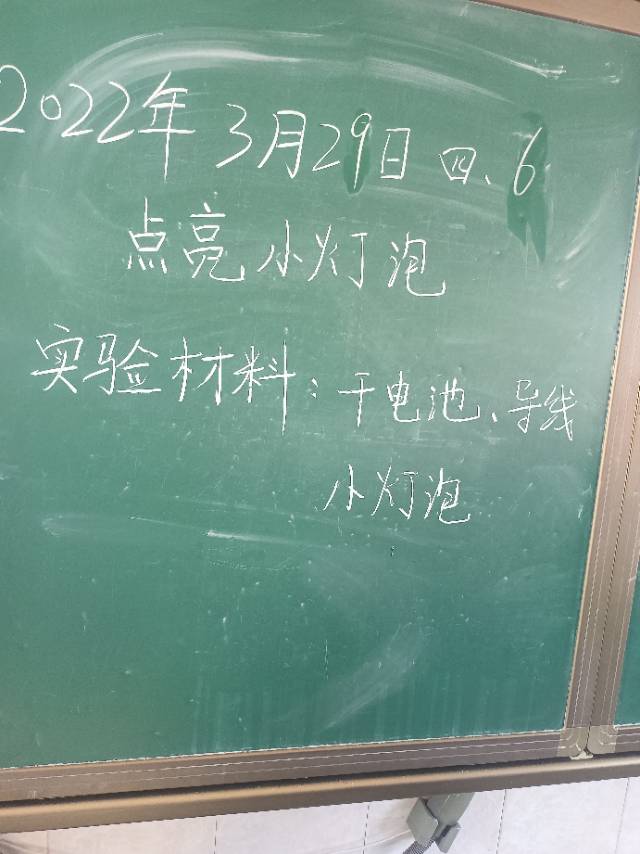 2022年3月29日 四、6
点亮小灯泡
实验材料：干电池、导线
小灯泡